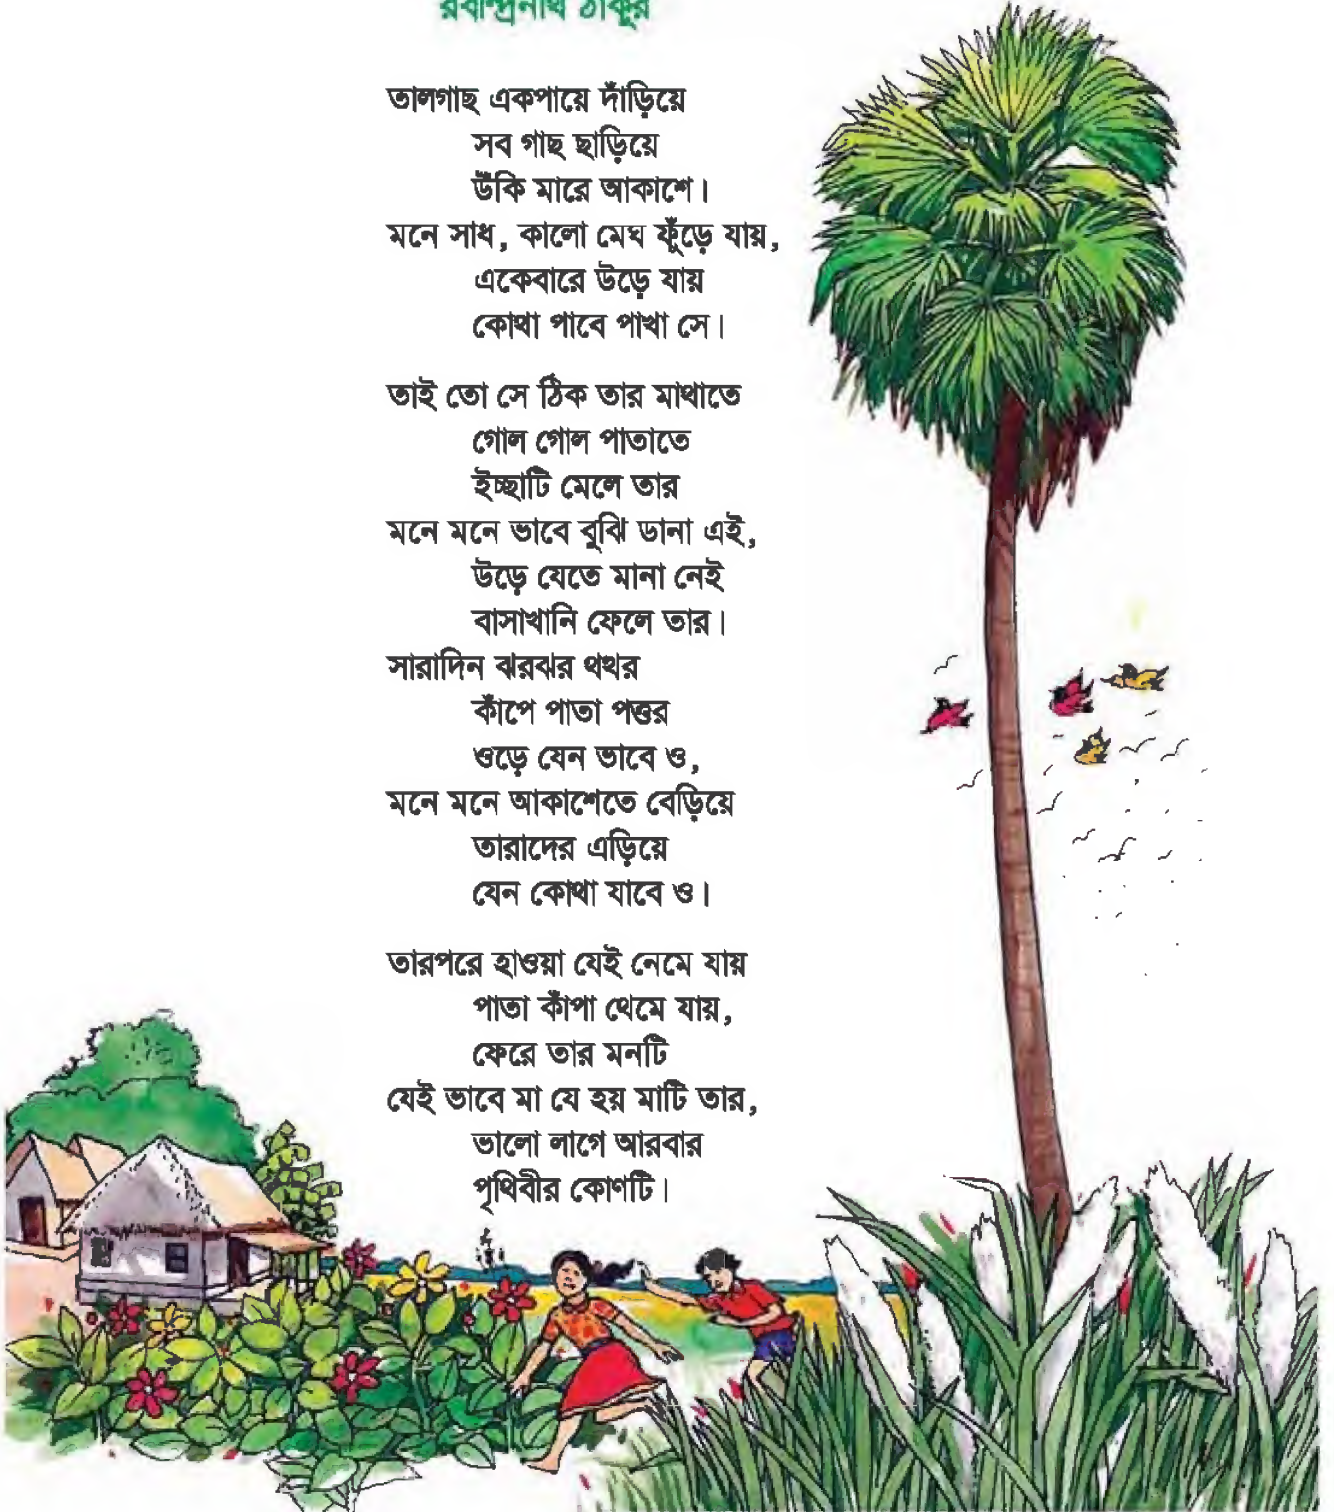 রবীন্দ্রনাথ ঠাকুর
তালগাছ একপায়ে দাঁড়িয়ে
সব গাছ ছাড়িয়ে
উঁকি মারে আকাশে।
মনে সাধ, কালো মেঘ ফুঁড়ে যায়,
একেবারে উড়ে যায়
কোথা পাবে পাখা সে।
তাই তো সে ঠিক তার মাথাতে
গোল গোল পাতাতে
ইচ্ছাটি মেলে তার
মনে মনে ভাবে বুঝি ডানা এই,
উড়ে যেতে মানা নেই
বাসাখানি ফেলে তার।
সারাদিন ঝরঝর থত্থর
কাঁপে পাতা পত্তর
ওড়ে যেন ভাবে ও,
মনে মনে আকাশেতে বেড়িয়ে
তারাদের এড়িয়ে
যেন কোথা যাবে ও।
তারপরে হাওয়া যেই নেমে যায়
পাতা কাঁপা থেমে যায়,
ফেরে তার মনটি
যেই ভাবে মা যে হয় মাটি তার,
ভালো লাগে আরবার
পৃথিবীর কোণটি।